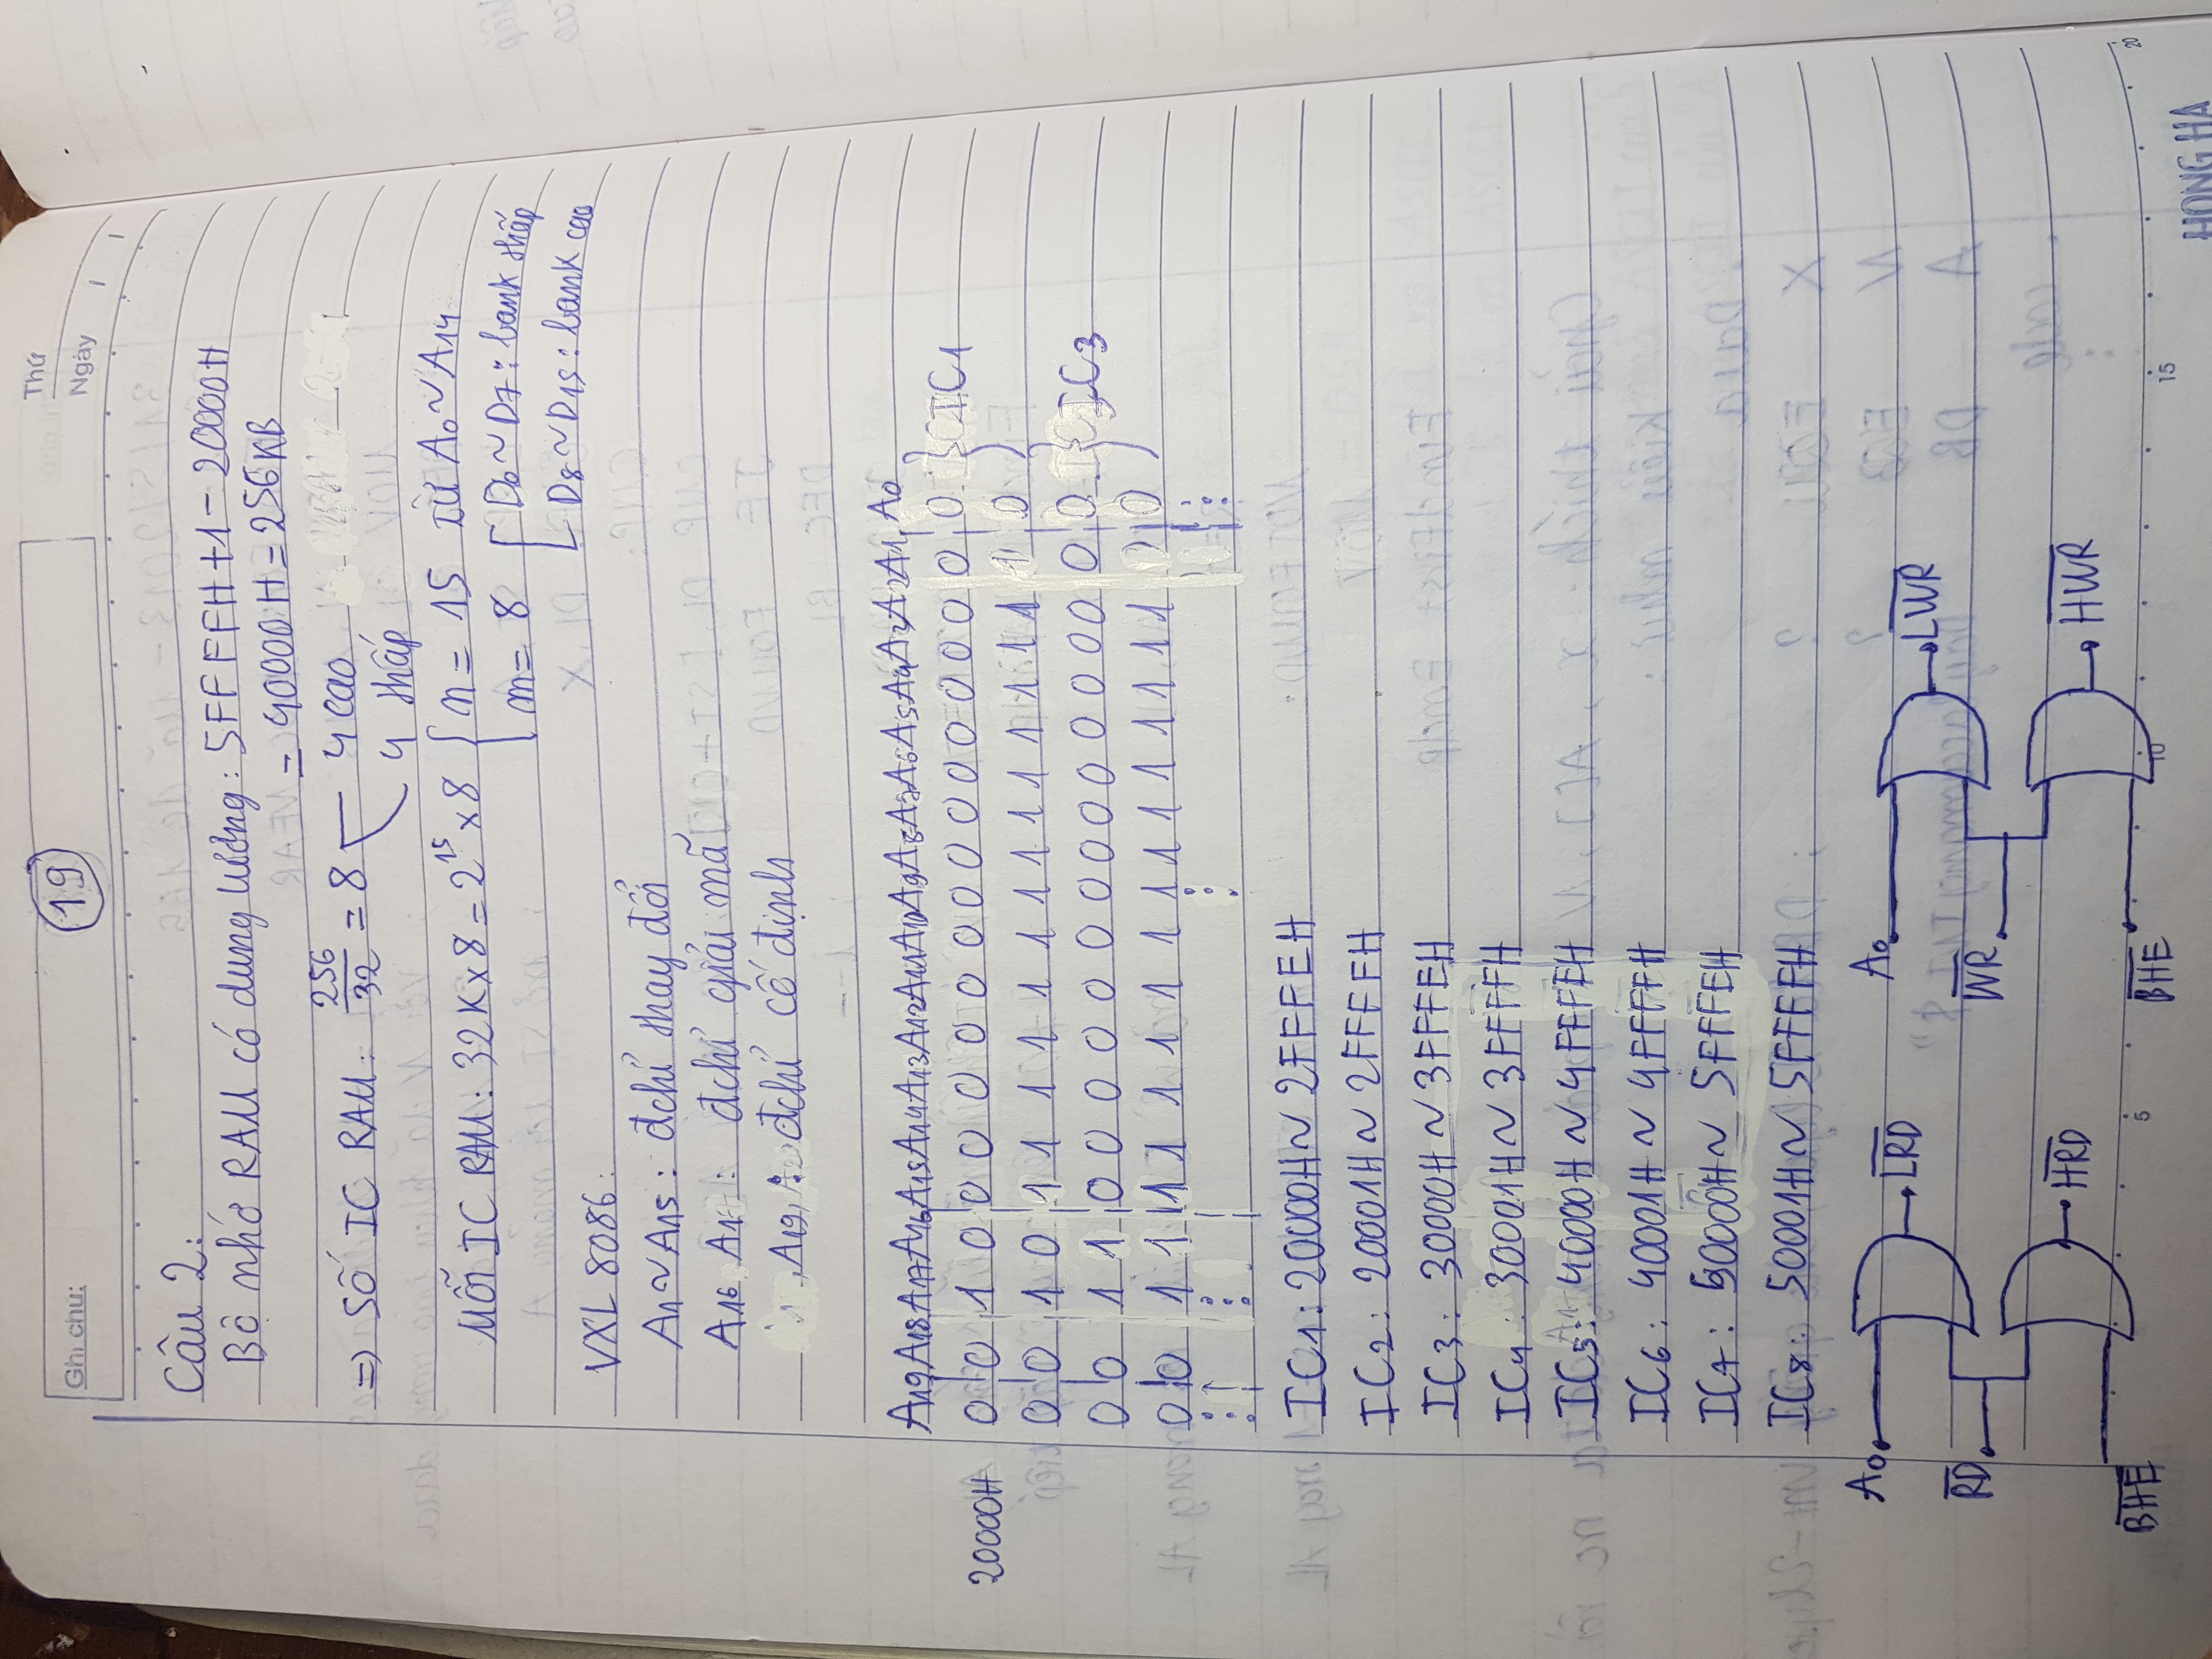 Ghi chú:
19
Thứ
Ngày
Câu 2:
Bộ nhớ RAM có dung lượng: 5FFFFH+1-20000H
= 40000H = 256KB
=> Số IC RAM: 256/32 = 8
4 cao
4 thấp
Mỗi IC RAM: 32K x 8 = 2^15 x 8
n = 15 từ A0 ~ A14
m = 8
D0 ~ D7: bank thấp
D8 ~ D15: bank cao
VXL 8086:
A1 ~ A15: đchỉ thay đổi
A16 A1 : đchỉ giải mã
, A19, : đchỉ cố định
A19 A18 A17 A16 A15 A14 A13 A12 A11 A10 A9 A8 A7 A6 A5 A4 A3 A2 A1 A0
20000H 0 0 1 0 0 0 0 0 0 0 0 0 0 0 0 0 0 0 0 0 IC1
0 0 1 0 1 1 1 1 1 1 1 1 1 1 1 1 1 1 1 0
0 0 1 1 0 0 0 0 0 0 0 0 0 0 0 0 0 0 0 0 IC3
0 0 1 1 1 1 1 1 1 1 1 1 1 1 1 1 1 1 0
IC1: 20000H ~ 2FFFEH
IC2: 20001H ~ 2FFFFH
IC3: 30000H ~ 3FFFEH
IC4: 30001H ~ 3FFFFH
IC5: 40000H ~ 4FFFEH
IC6: 40001H ~ 4FFFFH
IC7: 50000H ~ 5FFFEH
IC8: 50001H ~ 5FFFFH
A0
L̅R̅D̅
R̅D̅
H̅R̅D̅
B̅H̅E̅
A0
L̅W̅R̅
W̅R̅
H̅W̅R̅
B̅H̅E̅
5 10 15 20
HONG HA